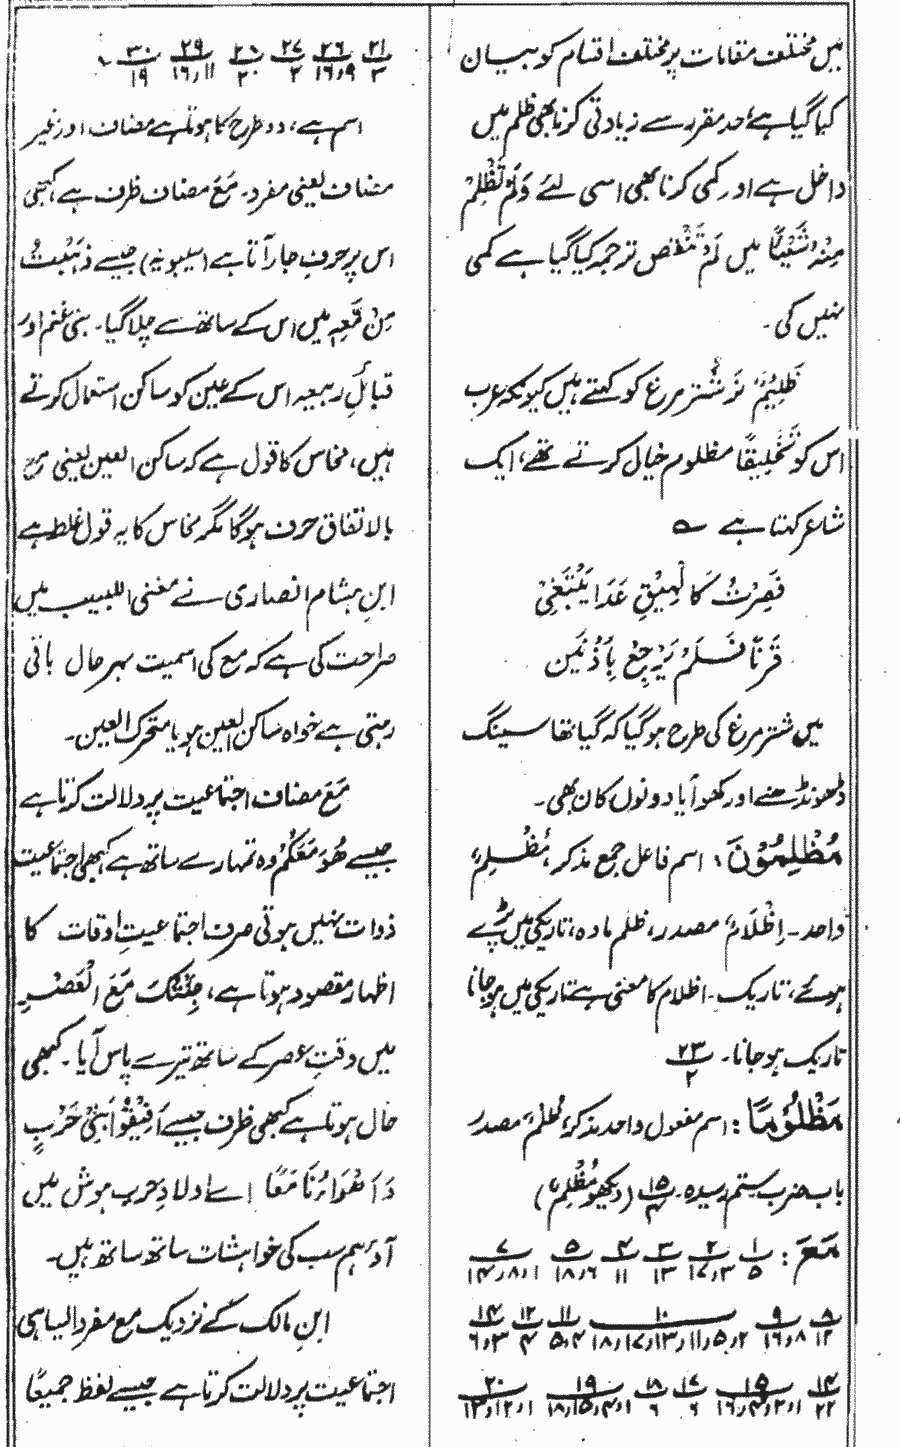 میں مختلف مقامات پر مختلف اقسام کو بیان
کیا گیا ہے، حد مقررہ سے زیادتی کرنا بھی ظلم میں
داخل ہے اور کمی کرنا بھی اسی لئے وَلَمْ تَظْلِمْ
مِنْهُ شَيْئًا میں لَمْ تَنْقُصْ ترجمہ کیا گیا ہے کمی
نہیں کی۔
ظَلِيْمٌ نَر شتر مرغ کو کہتے ہیں کیونکہ عرب
اس کو تَخْلِيقًا مظلوم خیال کرتے تھے، ایک
شاعر کہتا ہے ؎
فَصِرْتُ كَالْهِيْقِ غَدَا يَبْتَغِيْ
قَرْنًا فَلَمْ يَرْجِعْ بِأُذْنَيْن
میں شتر مرغ کی طرح ہو گیا کہ گیا تھا سینگ
ڈھونڈھنے اور کھو آیا دونوں کان بھی۔
مُظْلِمُوْنَ: اسم فاعل جمع مذکر، مُظْلِمٌ
واحد۔ اِظْلَامٌ مصدر، ظلم مادہ، تاریکی میں پڑے
ہوئے، تاریک۔ اظلام کا معنی ہے تاریکی میں ہوجانا
تاریک ہو جانا۔ ۲۳/۲
مَظْلُوْمًا: اسم مفعول واحد مذکر، ظُلْمٌ مصدر
باب ضرب ستم رسیدہ۔ ۱۵/۴ (دیکھو مُظْلِمٌ)
مَعَ: ۱/۵ ۲/۳، ۱۷ ۳/۱۳ ۴/۱۱ ۵/۶، ۱۸ ۷/۱، ۸، ۱۴
۸/۱۲ ۹/۸، ۱۶ ۱۰/۲، ۵، ۱۱، ۱۳، ۱۷، ۱۸ ۱۱/۴، ۵ ۱۲/۴ ۱۴/۳، ۶
۱۴/۲۲ ۱۵/۱، ۲، ۴، ۱۶ ۱۷/۶ ۱۸/۶ ۱۹/۱، ۴، ۱۵، ۱۸ ۲۰/۱، ۱۲، ۱۳
۲۱/۳ ۲۶/۹، ۱۶ ۲۷/۲ ۲۸/۲۰ ۲۹/۱۱، ۱۶ ۳۰/۱۹
اسم ہے، دو طرح کا ہوتا ہے مضاف اور غیر
مضاف یعنی مفرد۔ مَعَ مضاف ظرف ہے، کبھی
اس پر حرف جار آتا ہے (سیبویہ) جیسے ذَهَبْتُ
مِنْ مَّعِهٖ میں اس کے ساتھ سے چلا گیا۔ بنی غنم اور
قبائلِ ربیعہ اس کے عین کو ساکن استعمال کرتے
ہیں، نحاس کا قول ہے کہ ساکن العین یعنی مَعْ
بالاتفاق حرف ہوگا مگر نحاس کا یہ قول غلط ہے
ابن ہشام انصاری نے مغنی اللبیب میں
صراحت کی ہے کہ مع کی اسمیت بہرحال باقی
رہتی ہے خواہ ساکن العین ہو یا متحرک العین۔
مَعَ مضاف اجتماعیت پر دلالت کرتا ہے
جیسے هُوَ مَعَكُمْ وہ تمہارے ساتھ ہے کبھی اجتماعیت
ذوات نہیں ہوتی صرف اجتماعیتِ اوقات کا
اظہار مقصود ہوتا ہے، جِئْتُكَ مَعَ الْعَصْرِ
میں وقتِ عصر کے ساتھ تیرے پاس آیا۔ کبھی
حال ہوتا ہے کبھی ظرف جیسے اَفِيْقُوْا بَنِيْ حَرْبٍ
وَاَهْوَاؤُنَا مَعًا اے اولادِ حرب ہوش میں
آؤ، ہم سب کی خواہشات ساتھ ساتھ ہیں۔
ابن مالک کے نزدیک مع مفرد ایسا ہی
اجتماعیت پر دلالت کرتا ہے جیسے لفظ جمیعًا